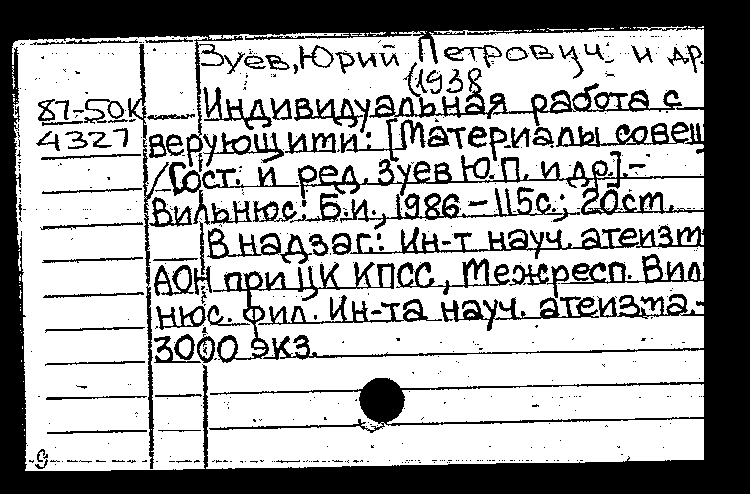 Зуев, Юрий Петрович и др.
(1938
87-50К Индивидуальная работа с
4327 верующити: [Материалы совещ
/Сост. и ред. Зуев Ю.П. и др.].-
Вильнюс: Б.и., 1986.- 115с.; 20ст.
В надзаг.: Ин-т науч. атеизт
АОН при ЦК КПСС, Межресп. Вил
нюс. фил. Ин-та науч. атеизта.-
3000 экз.